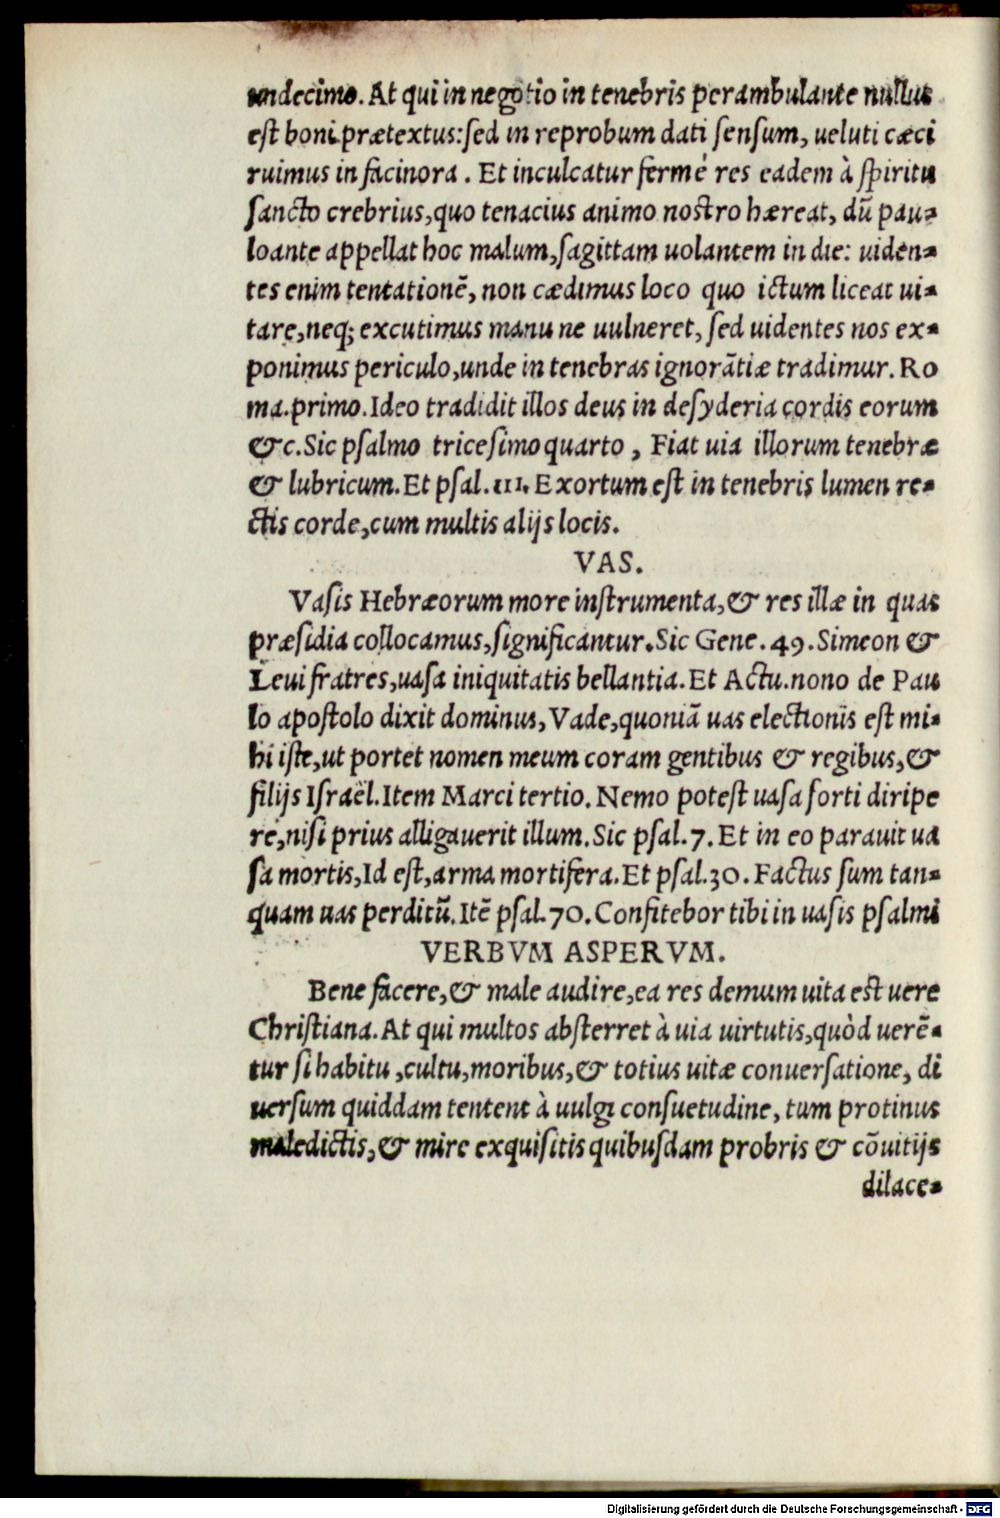 undecimo. At qui in negotio in tenebris perambulante nullus
est boni prætextus: sed in reprobum dati sensum, ueluti cæci
ruimus in facinora. Et inculcatur fermè res eadem à spiritu
sancto crebrius, quo tenacius animo nostro hæreat, dũ pau-
loante appellat hoc malum, sagittam uolantem in die: uiden-
tes enim tentationẽ, non cædimus loco quo ictum liceat ui-
tare, neq; excutimus manu ne uulneret, sed uidentes nos ex-
ponimus periculo, unde in tenebras ignorãtiæ tradimur. Ro
ma. primo. Ideo tradidit illos deus in desyderia cordis eorum
&c. Sic psalmo tricesimo quarto, Fiat uia illorum tenebræ
& lubricum. Et psal. 111. Exortum est in tenebris lumen re-
ctis corde, cum multis alijs locis.
VAS.
Vasis Hebræorum more instrumenta, & res illæ in quas
præsidia collocamus, significantur. Sic Gene. 49. Simeon &
Leui fratres, uasa iniquitatis bellantia. Et Actu. nono de Pau
lo apostolo dixit dominus, Vade, quoniã uas electionis est mi-
hi iste, ut portet nomen meum coram gentibus & regibus, &
filijs Israël. Item Marci tertio. Nemo potest uasa forti diripe
re, nisi prius alligauerit illum. Sic psal. 7. Et in eo parauit ua
sa mortis, Id est, arma mortifera. Et psal. 30. Factus sum tan-
quam uas perditũ. Itẽ psal. 70. Confitebor tibi in uasis psalmi
VERBVM ASPERVM.
Bene facere, & male audire, ea res demum uita est uere
Christiana. At qui multos absterret à uia uirtutis, quòd uerẽ-
tur si habitu, cultu, moribus, & totius uitæ conuersatione, di
uersum quiddam tentent à uulgi consuetudine, tum protinus
maledictis, & mire exquisitis quibusdam probris & cõuitijs
dilace-
Digitalisierung gefördert durch die Deutsche Forschungsgemeinschaft - DFG